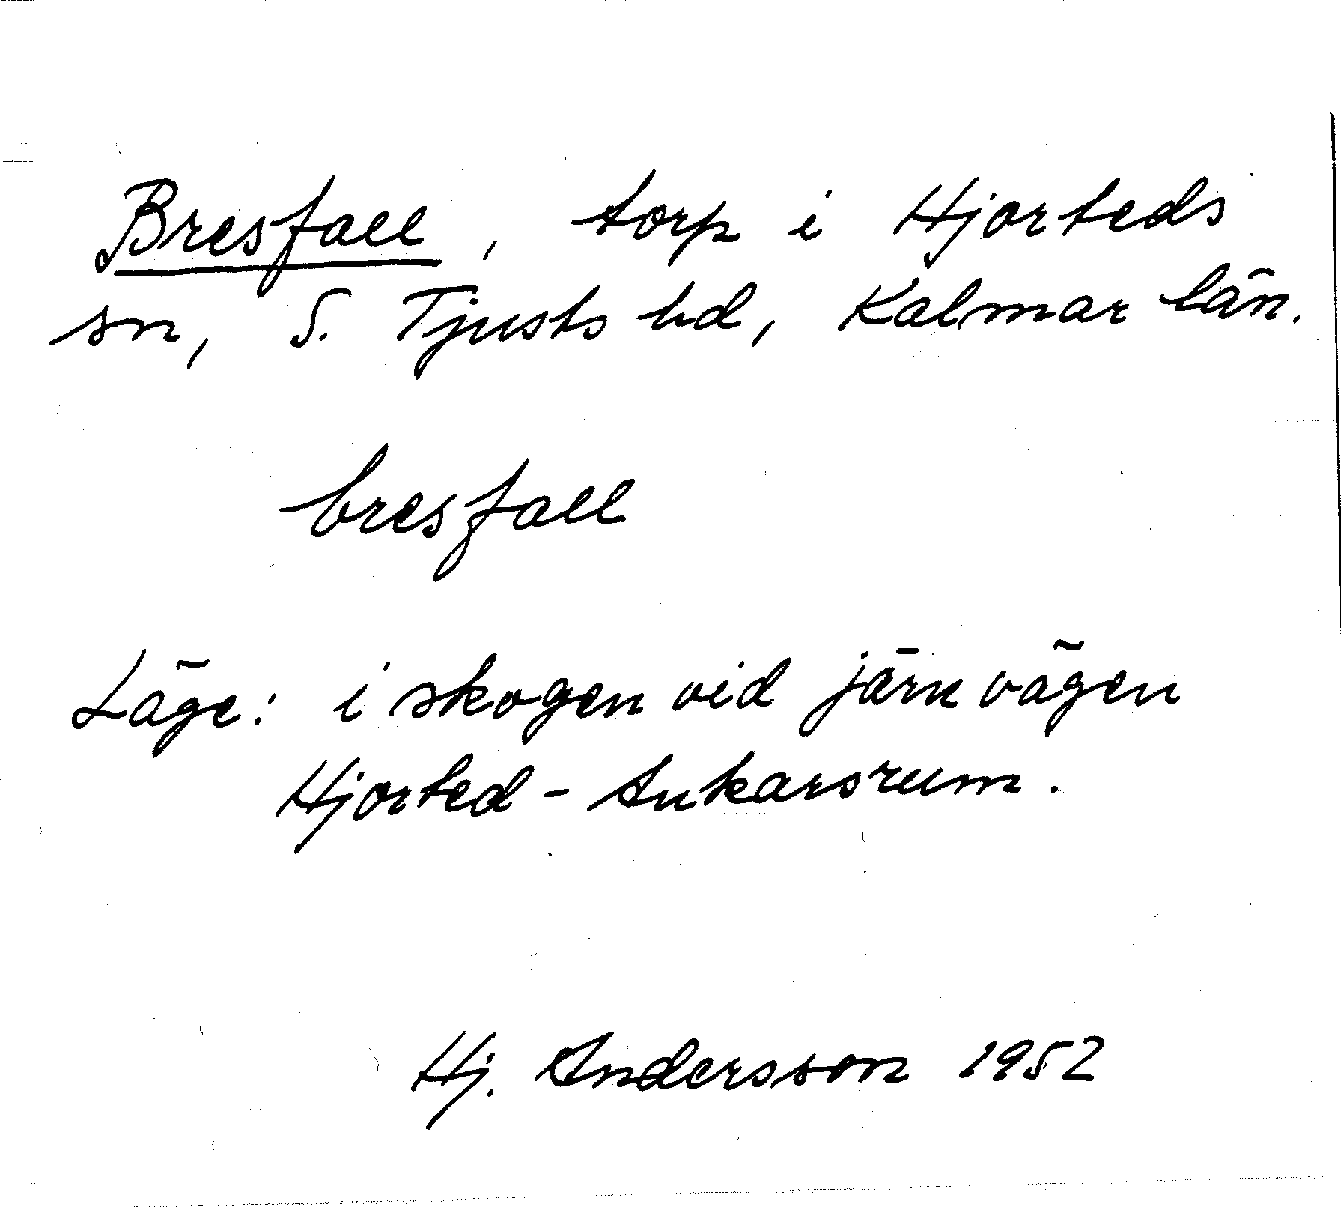 Bresfall, torp i Hjorteds
sn, S. Tjusts hd, Kalmar län.
bresfall
Läge: i skogen vid järnvägen
Hjorted - Ankarsrum.
Hj. Andersson 1952